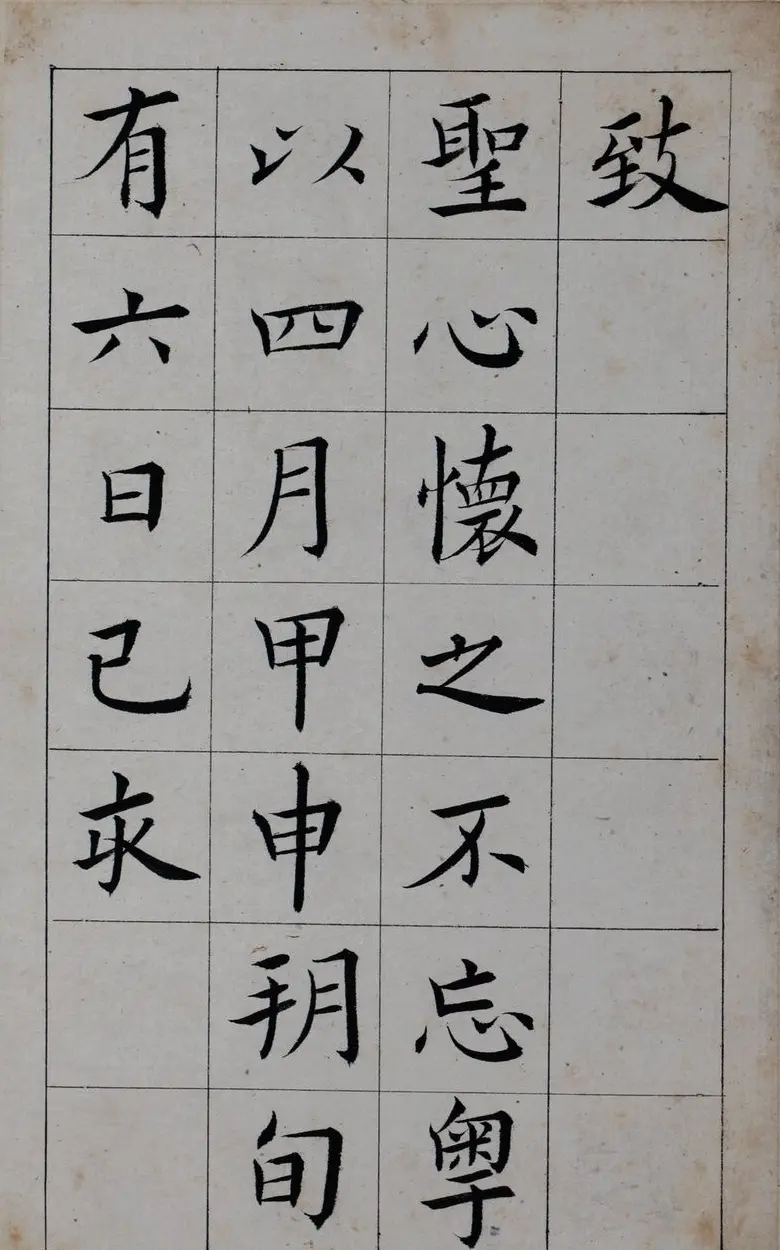 致
聖心懷之不忘粤
以四月甲申朔旬
有六日己亥